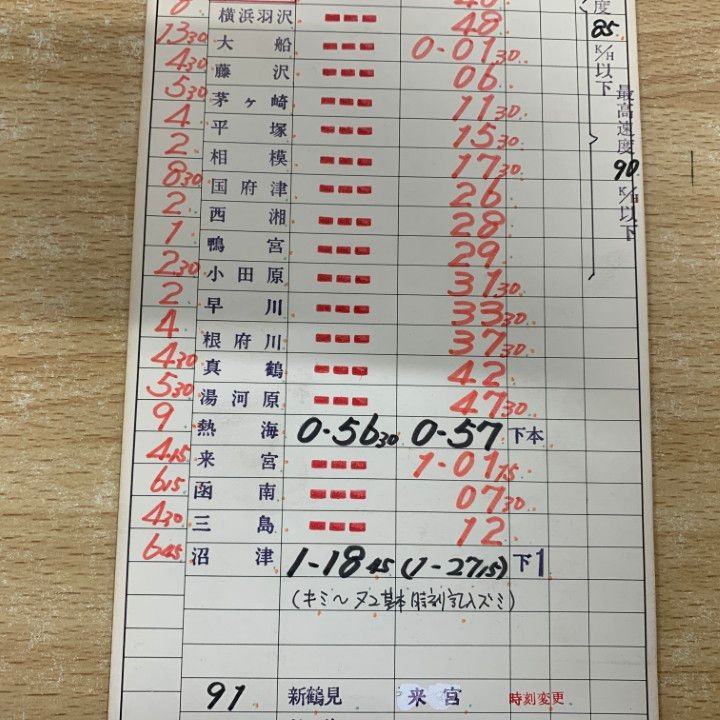 横浜羽沢 48
1330 大船 0-0130
430 藤沢 06
530 茅ヶ崎 1130
4 平塚 1530
2 相模 1730
830 国府津 26
2 西湘 28
1 鴨宮 29
230 小田原 3130
2 早川 3330
4 根府川 3730
430 真鶴 42
530 湯河原 4730
9 熱海 0-5630 0-57 下本
415 来宮 1-0115
615 函南 0730
430 三島 12
645 沼津 1-1845 (1-2715) 下1
(キミ〜ヌコ基本時刻記入ズミ)
91 新鶴見 来宮 時刻変更
度85K/H以下
最高速度90K/H以下